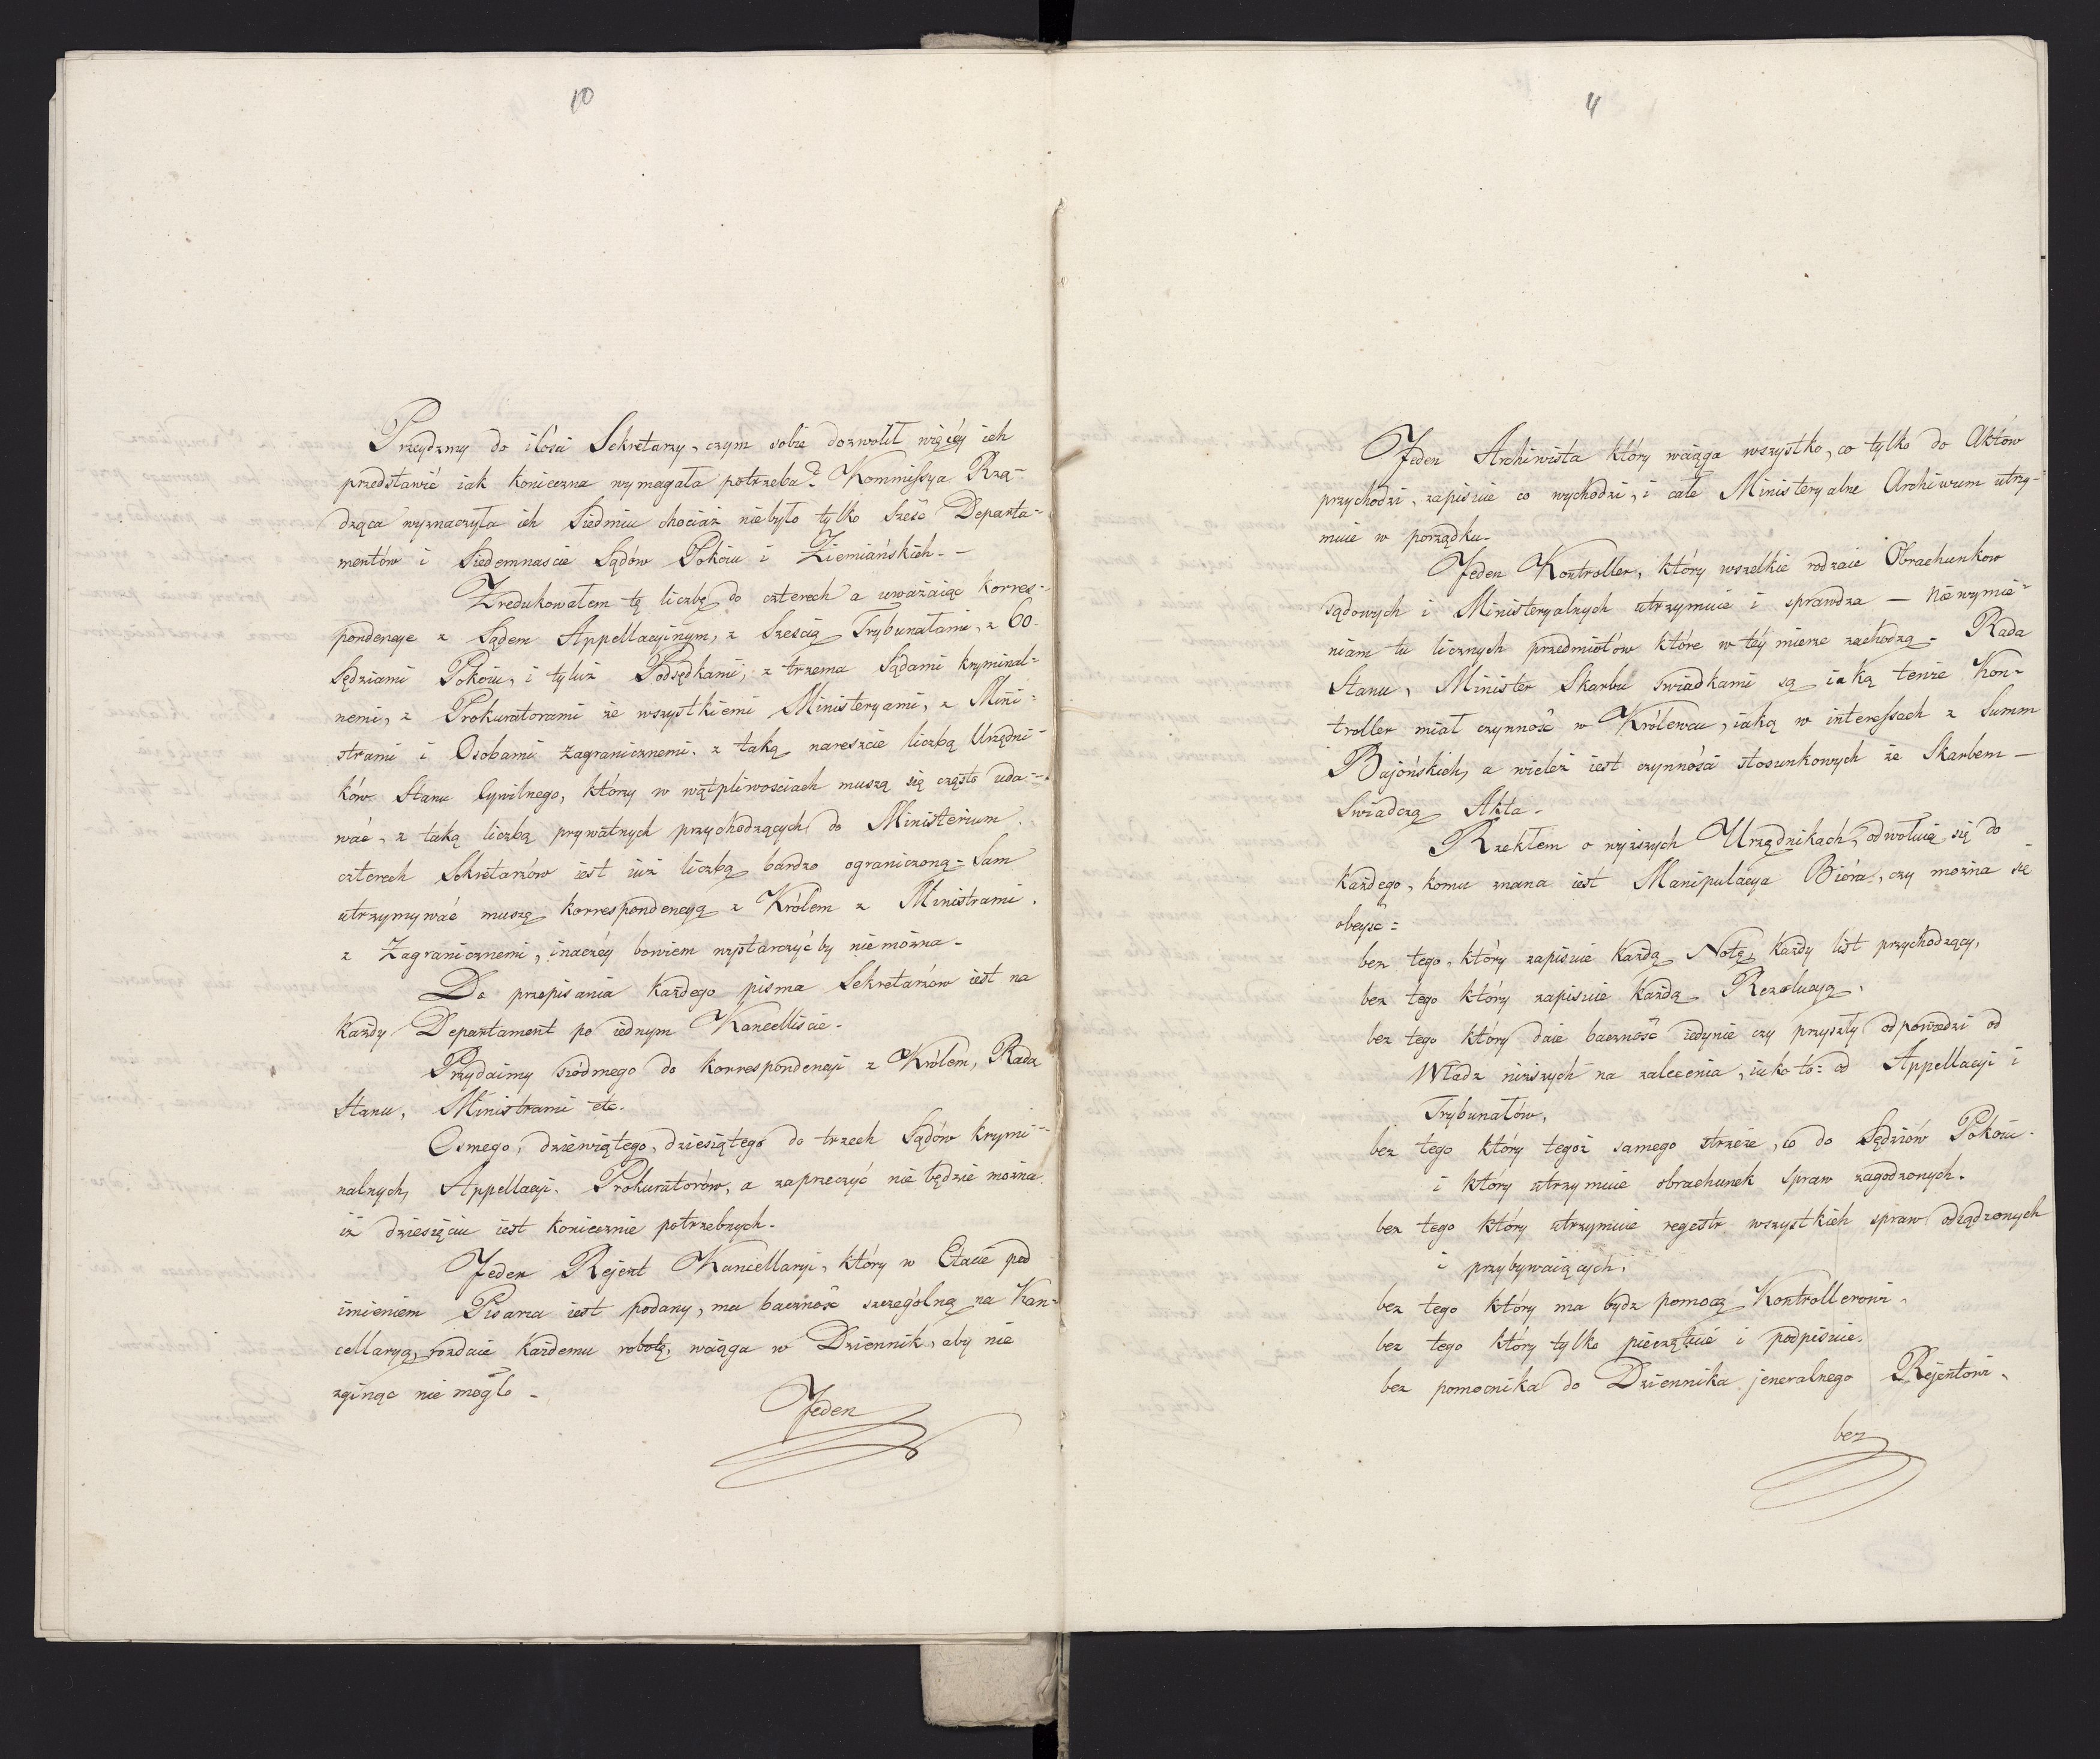 10
Przeydzmy do ilości Sekretarzy, czym sobie dozwolił więcéy ich
przedstawić iak konieczna wymagała potrzeba? Kommissya Rzą-
dząca wyznaczyła ich Siedmiu chociaż niebyło tylko sześć Departa-
mentów i Siedemnaście Sądów Pokoiu i Ziemiańskich. -
Zredukowałem tę liczbę do czterech a uważaiąc korres-
pondencye z Sądem Appellacyinym, z Sześcią Trybunałami, z 60.
Sędziami Pokoiu, i tyluż Podsędkami, z trzema Sądami kryminal-
nemi, z Prokuratorami ze wszystkiemi Ministeryami, z Mini-
strami i Osobami Zagranicznemi. z taką nareszcie liczbą Urzędni-
ków Stanu Cywilnego, którzy w wątpliwościach muszą się często uda-
wać, z taką liczbą prywatnych przychodzących do Ministerium.
czterech Sekretarzów iest iuż liczbą bardzo ograniczoną - Sam
utrzymywać muszę korrespondencyą z Królem z Ministrami.
z Zagranicznemi, inaczéy bowiem wystarczyć by niemożna -
Do przepisania każdego pisma Sekretarzów iest na
każdy Departament po iednym Kancelliście -
Przydaimy siódmego do korrespondencyi z Królem, Radą
Stanu, Ministrami etc.
Osmego, dziewiątego, dziesiątego do trzech Sądów krymi-
nalnych, Appellacyi. Prokuratorów, a zaprzeczyć nie będzie można
iż dziesięciu iest koniecznie potrzebnych.
Jeden Rejent Kancellaryi, który w Etacie pod
imieniem Pisarza iest podany, ma baczność szczególną na Kan-
cellaryą, rozdaie każdemu robotę, wciąga w Dziennik, aby nic
zginąc nie mogło -
Jeden
11
Jeden Archiwista który wciąga wszystko, co tylko do Aktów
przychodzi, zapisuie co wychodzi, i całe Ministeryalne Archiwum utrzy-
muie w porządku -
Jeden Kontroller, który wszelkie rodzaie Obrachunkow
sądowych i Ministeryalnych utrzymuie i sprawdza - Niewymie-
niam tu licznych przedmiotów które w téy mierze zachodzą - Rada
Stanu, Minister Skarbu świadkami są iaką tenże Kon-
troller miał czynność w Królewcu, iaką w interessach z Summ
Bajońskich, a wieleż iest czynności stosunkowych ze Skarbem -
Świadczą Akta.
Rzekłem o wyższych Urzędnikach, odwołuię się do
każdego, komu znana iest Manipulacya Bióra, czy można się
obeyść =
bez tego, który zapisuie każdą Notę, każdy list przychodzący,
bez tego który zapisuie każdą Rezolucyą.
bez tego który daie baczność iedynie czy przyszły odpowiedzi od
Władz niższych na zalecenia, iako to: od Appellacyi i
Trybunałów,
bez tego który tegoż samego strzeże, co do Sędziów Pokoiu.
i który utrzymuie obrachunek spraw zagodzonych.
bez tego który utrzymuie regestr wszystkich spraw odsądzonych
i przybywaiących,
bez tego który ma bydz pomocą Kontrollerowi.
bez tego który tylko pieczętuie i podpisuie.
bez pomocnika do Dziennika jeneralnego Rejentowi.
bez